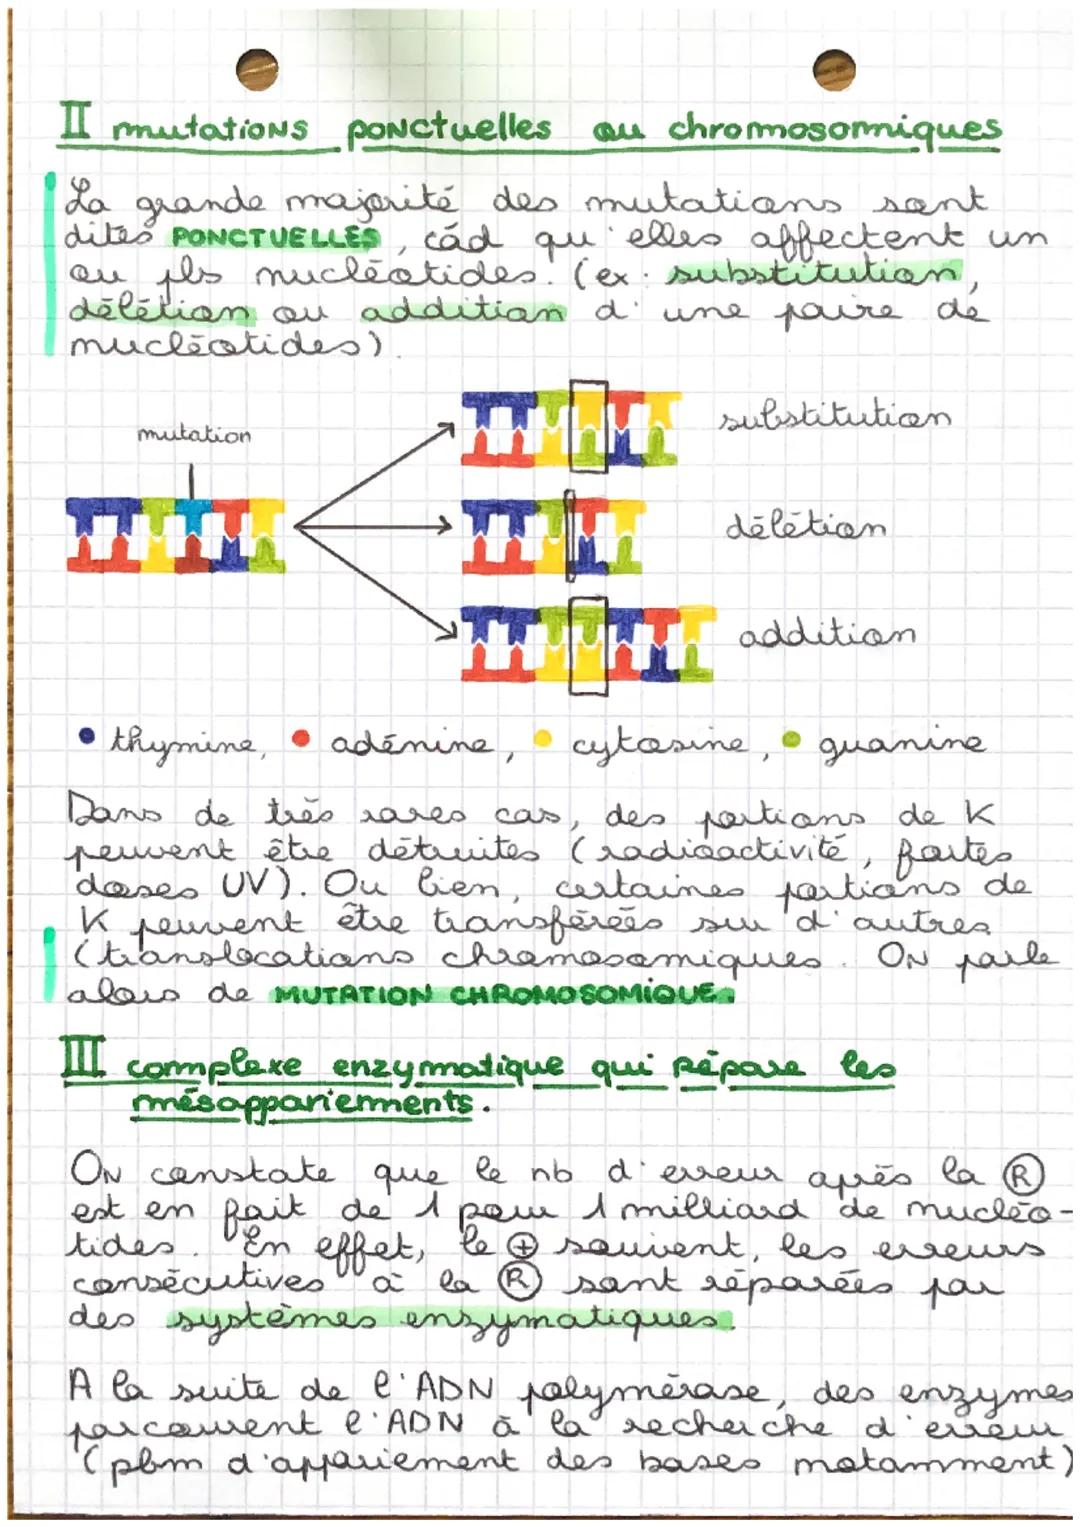 II mutations ponctuelles ou chromosomiques
La grande majorité des mutations sont
dites PONCTUELLES, càd qu'elles affectent un
ou pls nucléotides. (ex: substitution,
délétion ou addition d'une paire de
nucléotides).
mutation
substitution
délétion
addition
• thymine, • adénine, • cytosine, • guanine
Dans de très rares cas, des portions de K
peuvent être détruites (radioactivité, fortes
doses UV). Ou bien, certaines portions de
K peuvent être transférées sur d'autres
(translocations chromosomiques. On parle
alors de MUTATION CHROMOSOMIQUE.
III complexe enzymatique qui répare les
mésappariements.
On constate que le nb d'erreur après la Ⓡ
est en fait de 1 pour 1 milliard de nucléo-
tides. En effet, le ⊕ souvent, les erreurs
consécutives à la Ⓡ sont réparées par
des systèmes enzymatiques.
A la suite de l'ADN polymérase, des enzymes
parcourent l'ADN à la recherche d'erreur
(pbm d'appariement des bases notamment)